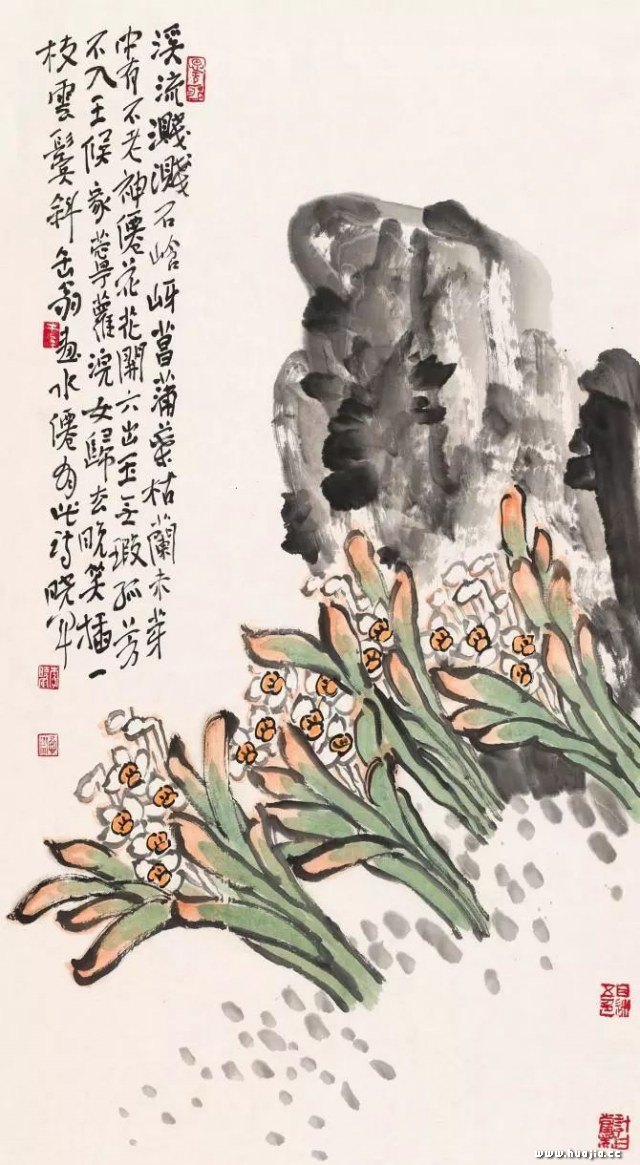 溪流濺濺石峆岈菖蒲葉枯蘭未芽
中有不老神僊花花開六出玉无瑕孤芳
不入王侯家薴蘿浣女歸去晚笑插一
枝雲鬢斜缶翁畫水僊有此詩
www.huajia.cc